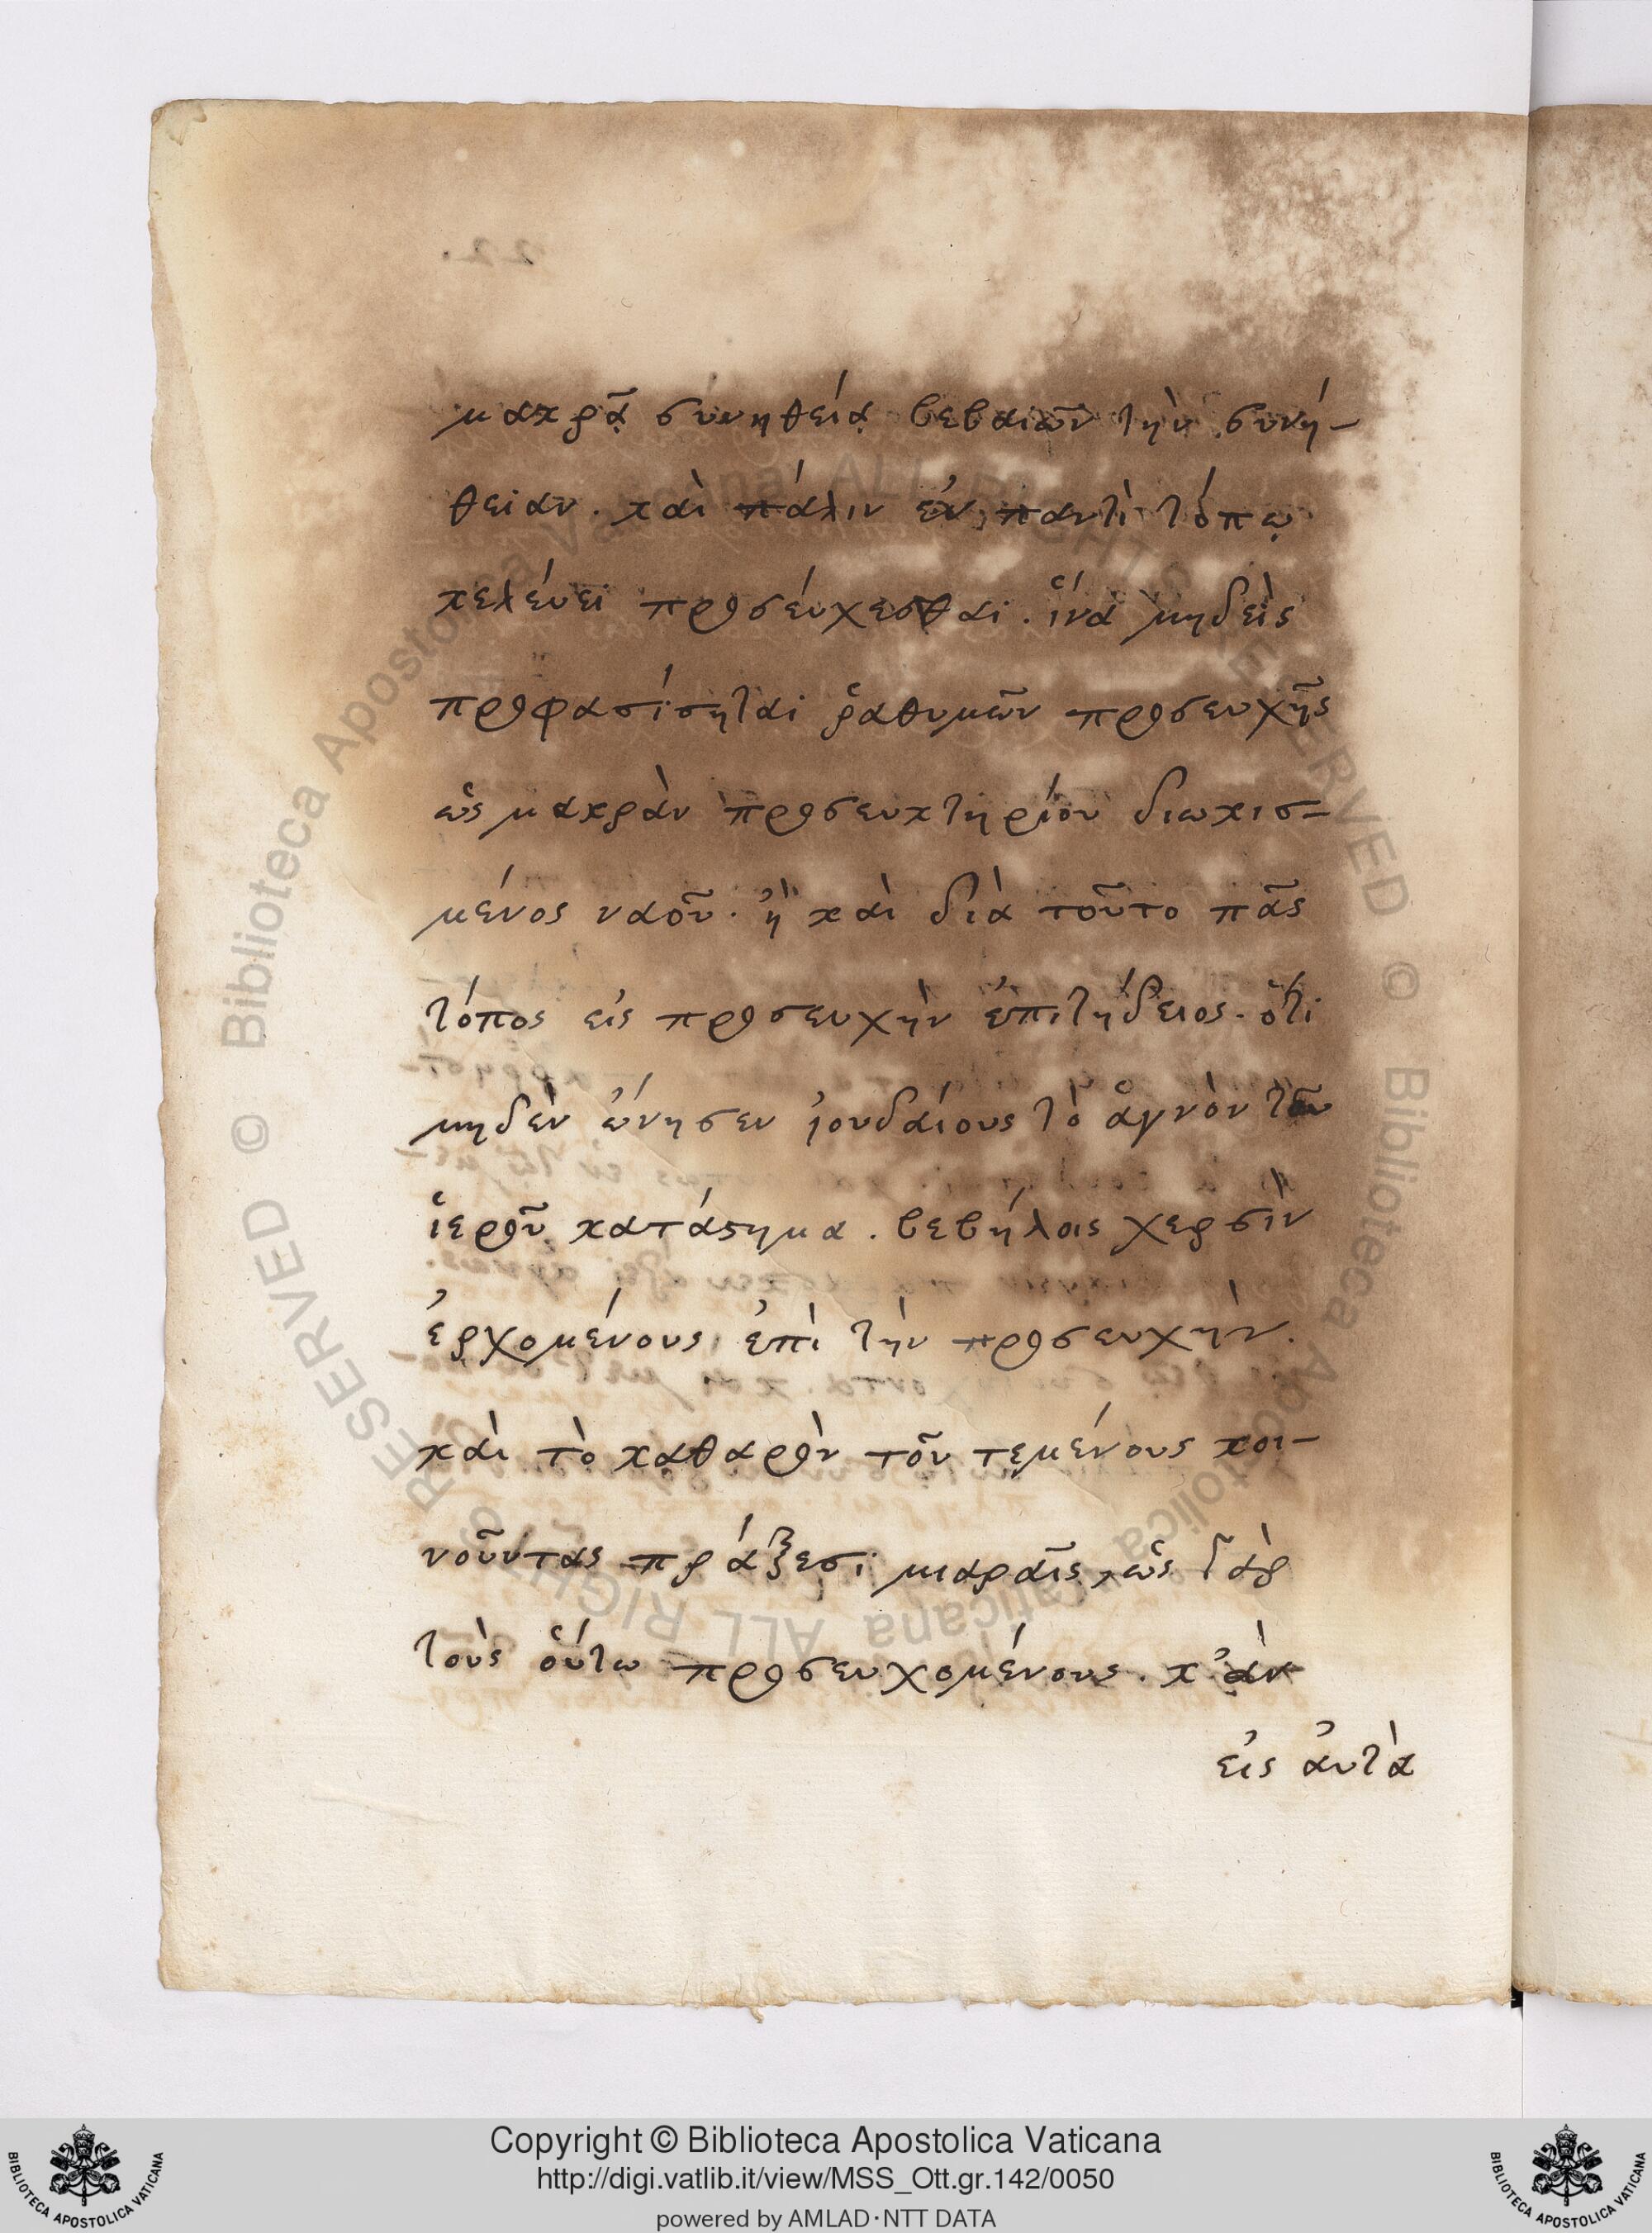 22.
μακρᾷ συνηθείᾳ βεβαιῶν τὴν συνή-
θειαν. καὶ πάλιν ἐν παντὶ τόπῳ
κελεύει προσεύχεσθαι. ἵνα μηδεὶς
προφασίσηται ῥαθυμῶν προσευχῆς
ὡς μακρὰν προσευκτηρίου διωκισ-
μένος ναοῦ. ἢ καὶ διὰ τοῦτο πᾶς
τόπος εἰς προσευχὴν ἐπιτήδειος. ὅτι
μηδὲν ὤνησεν ἰουδαίους τὸ ἁγνὸν τοῦ
ἱεροῦ κατάστημα. βεβήλοις χερσὶν
ἐρχομένους ἐπὶ τὴν προσευχὴν.
καὶ τὸ καθαρὸν τοῦ τεμένους κοι-
νοῦντας πράξεσι μιαραῖς, ὡς γὰρ
τοὺς οὕτω προσευχομένους. κ'ἂν
εἰς ἀυτὰ
© Biblioteca Apostolica Vaticana ALL RIGHTS RESERVED © Biblioteca Apostolica Vaticana ALL RIGHTS RESERVED
BIBLIOTECA APOSTOLICA VATICANA
Copyright © Biblioteca Apostolica Vaticana
http://digi.vatlib.it/view/MSS_Ott.gr.142/0050
powered by AMLAD·NTT DATA
BIBLIOTECA APOSTOLICA VATICANA